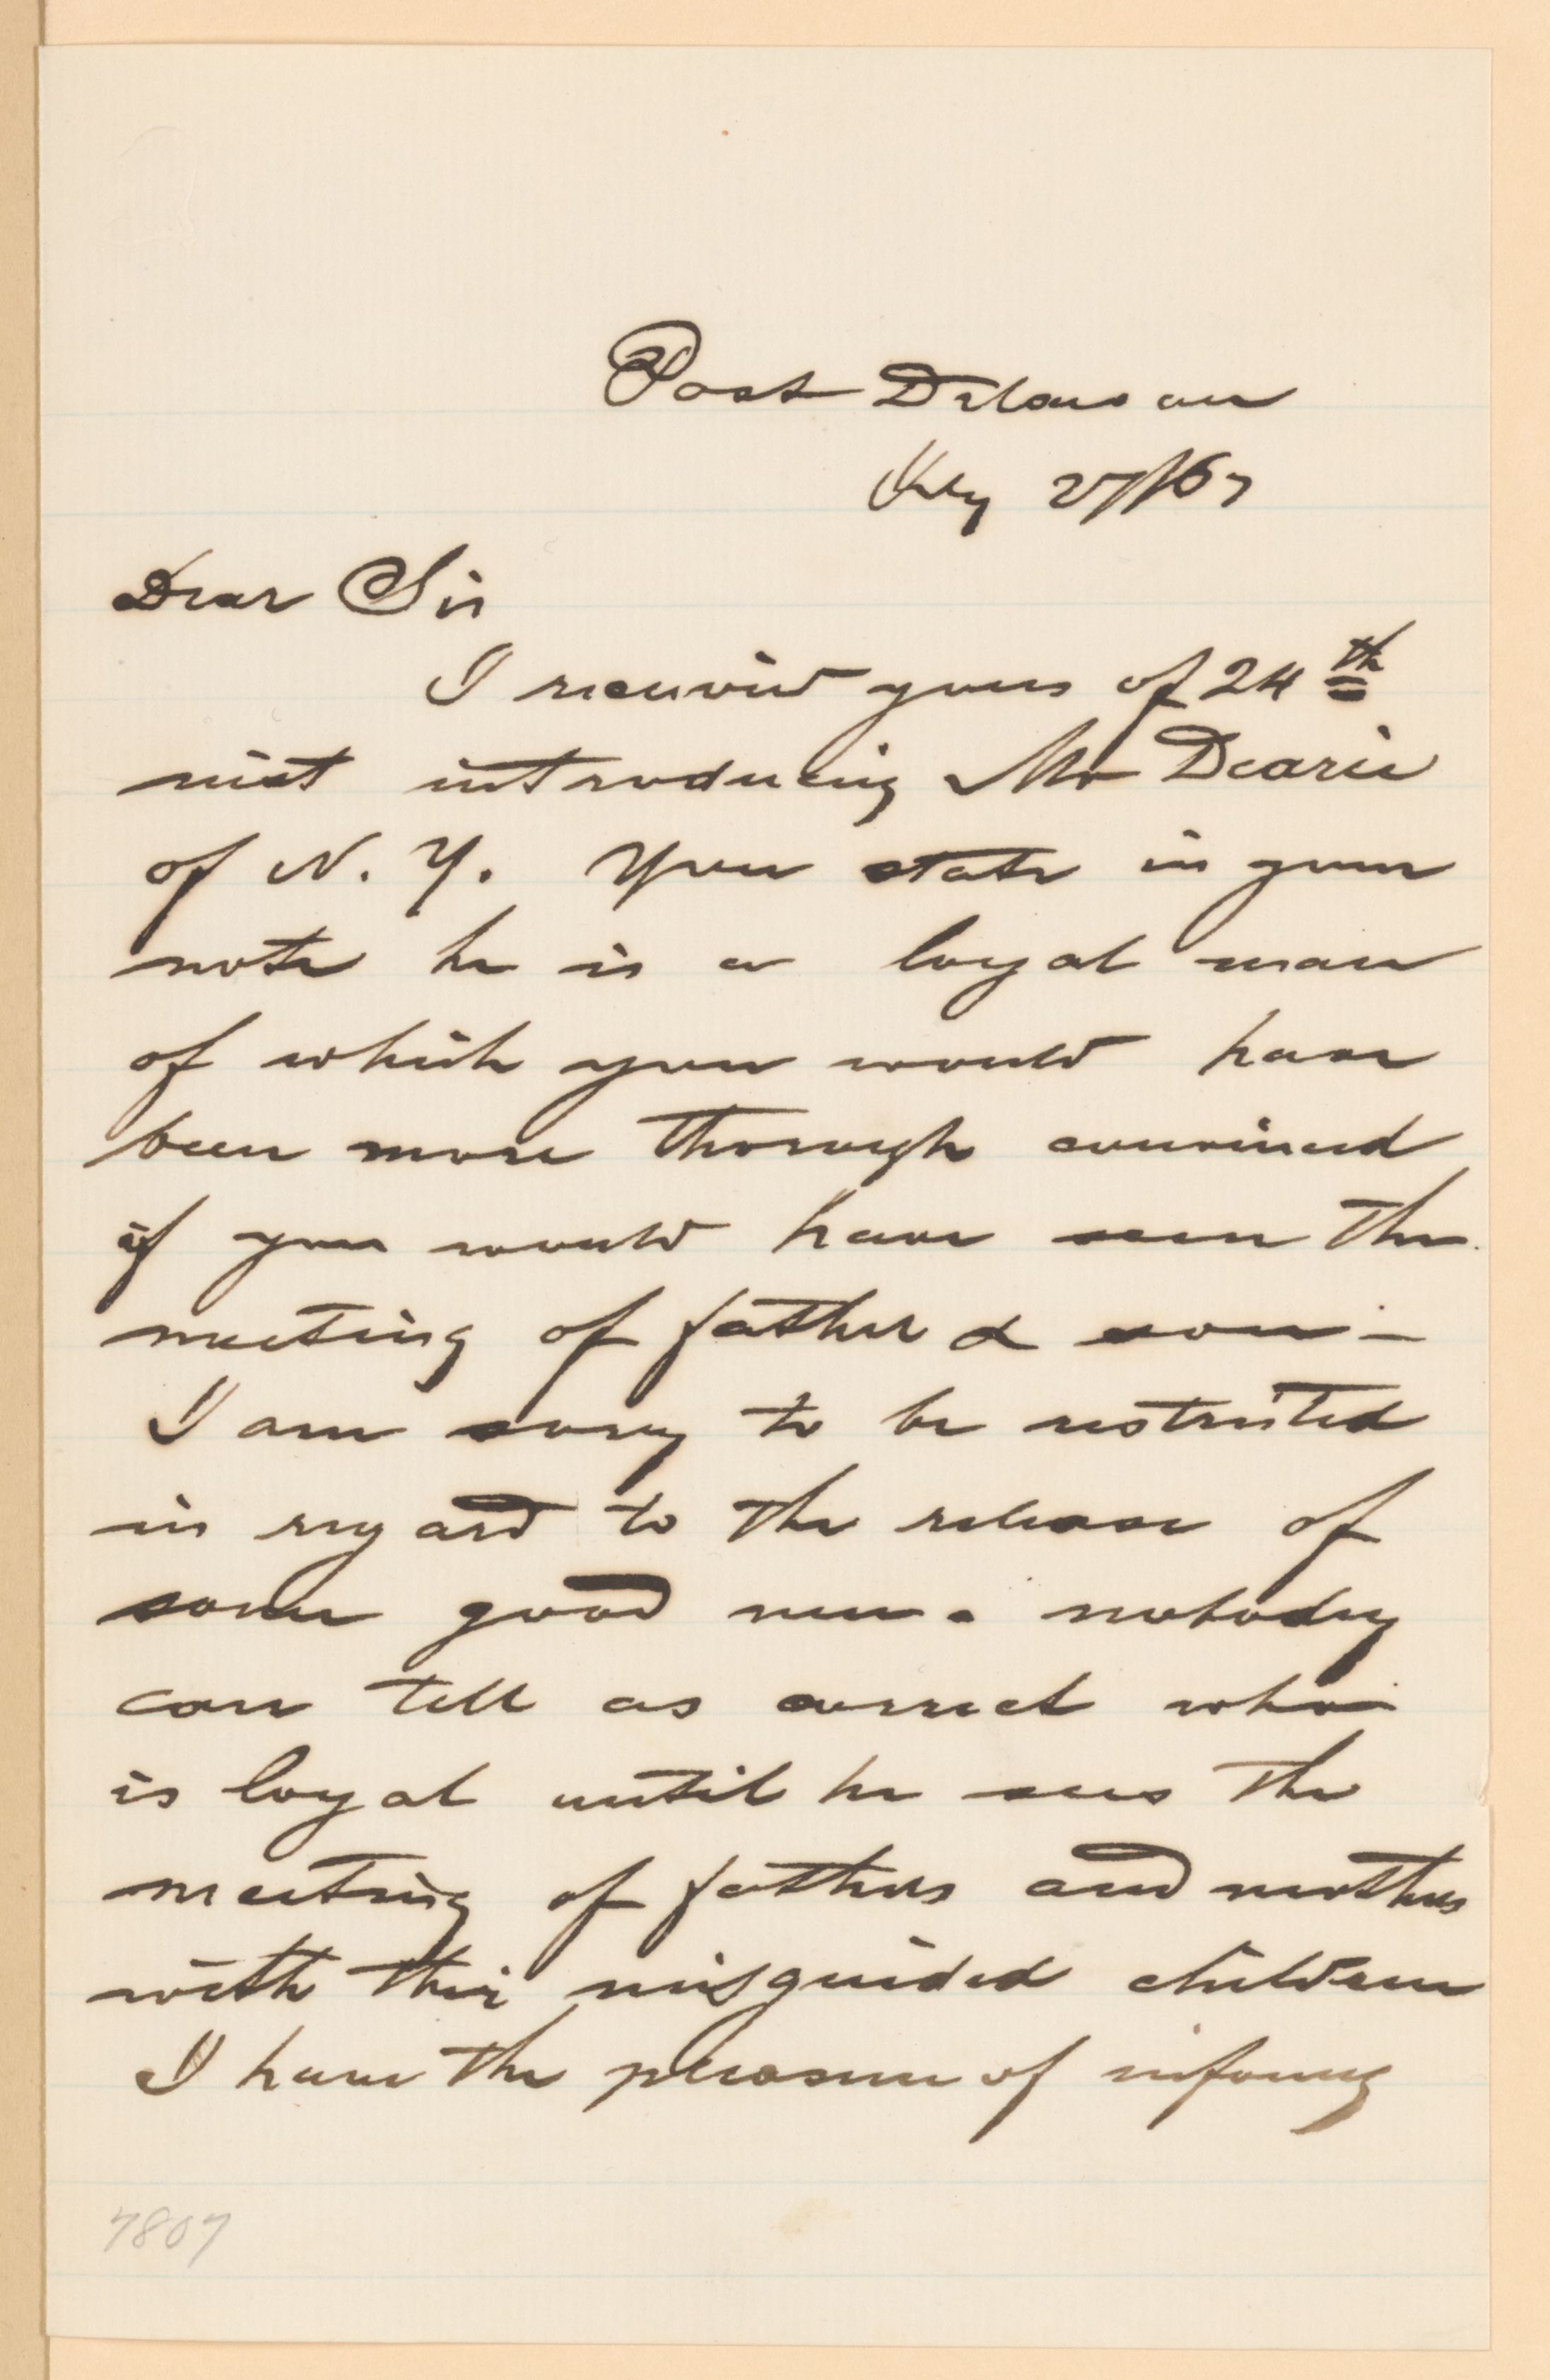 Post Delaware
July 27/67
Dear Sir
I received yours of 24th
inst introducing Mr Dearie
of N. Y. You state in your
note he is a loyal man
of which you would have
been more thorough convinced
if you would have seen the
meeting of father & son -
I am sorry to be restricted
in regard to the release of
some good men. nobody
can tell as correct who
is loyal until he sees the
meeting of fathers and mothers
with their misguided children
I have the pleasure of infoming
7807